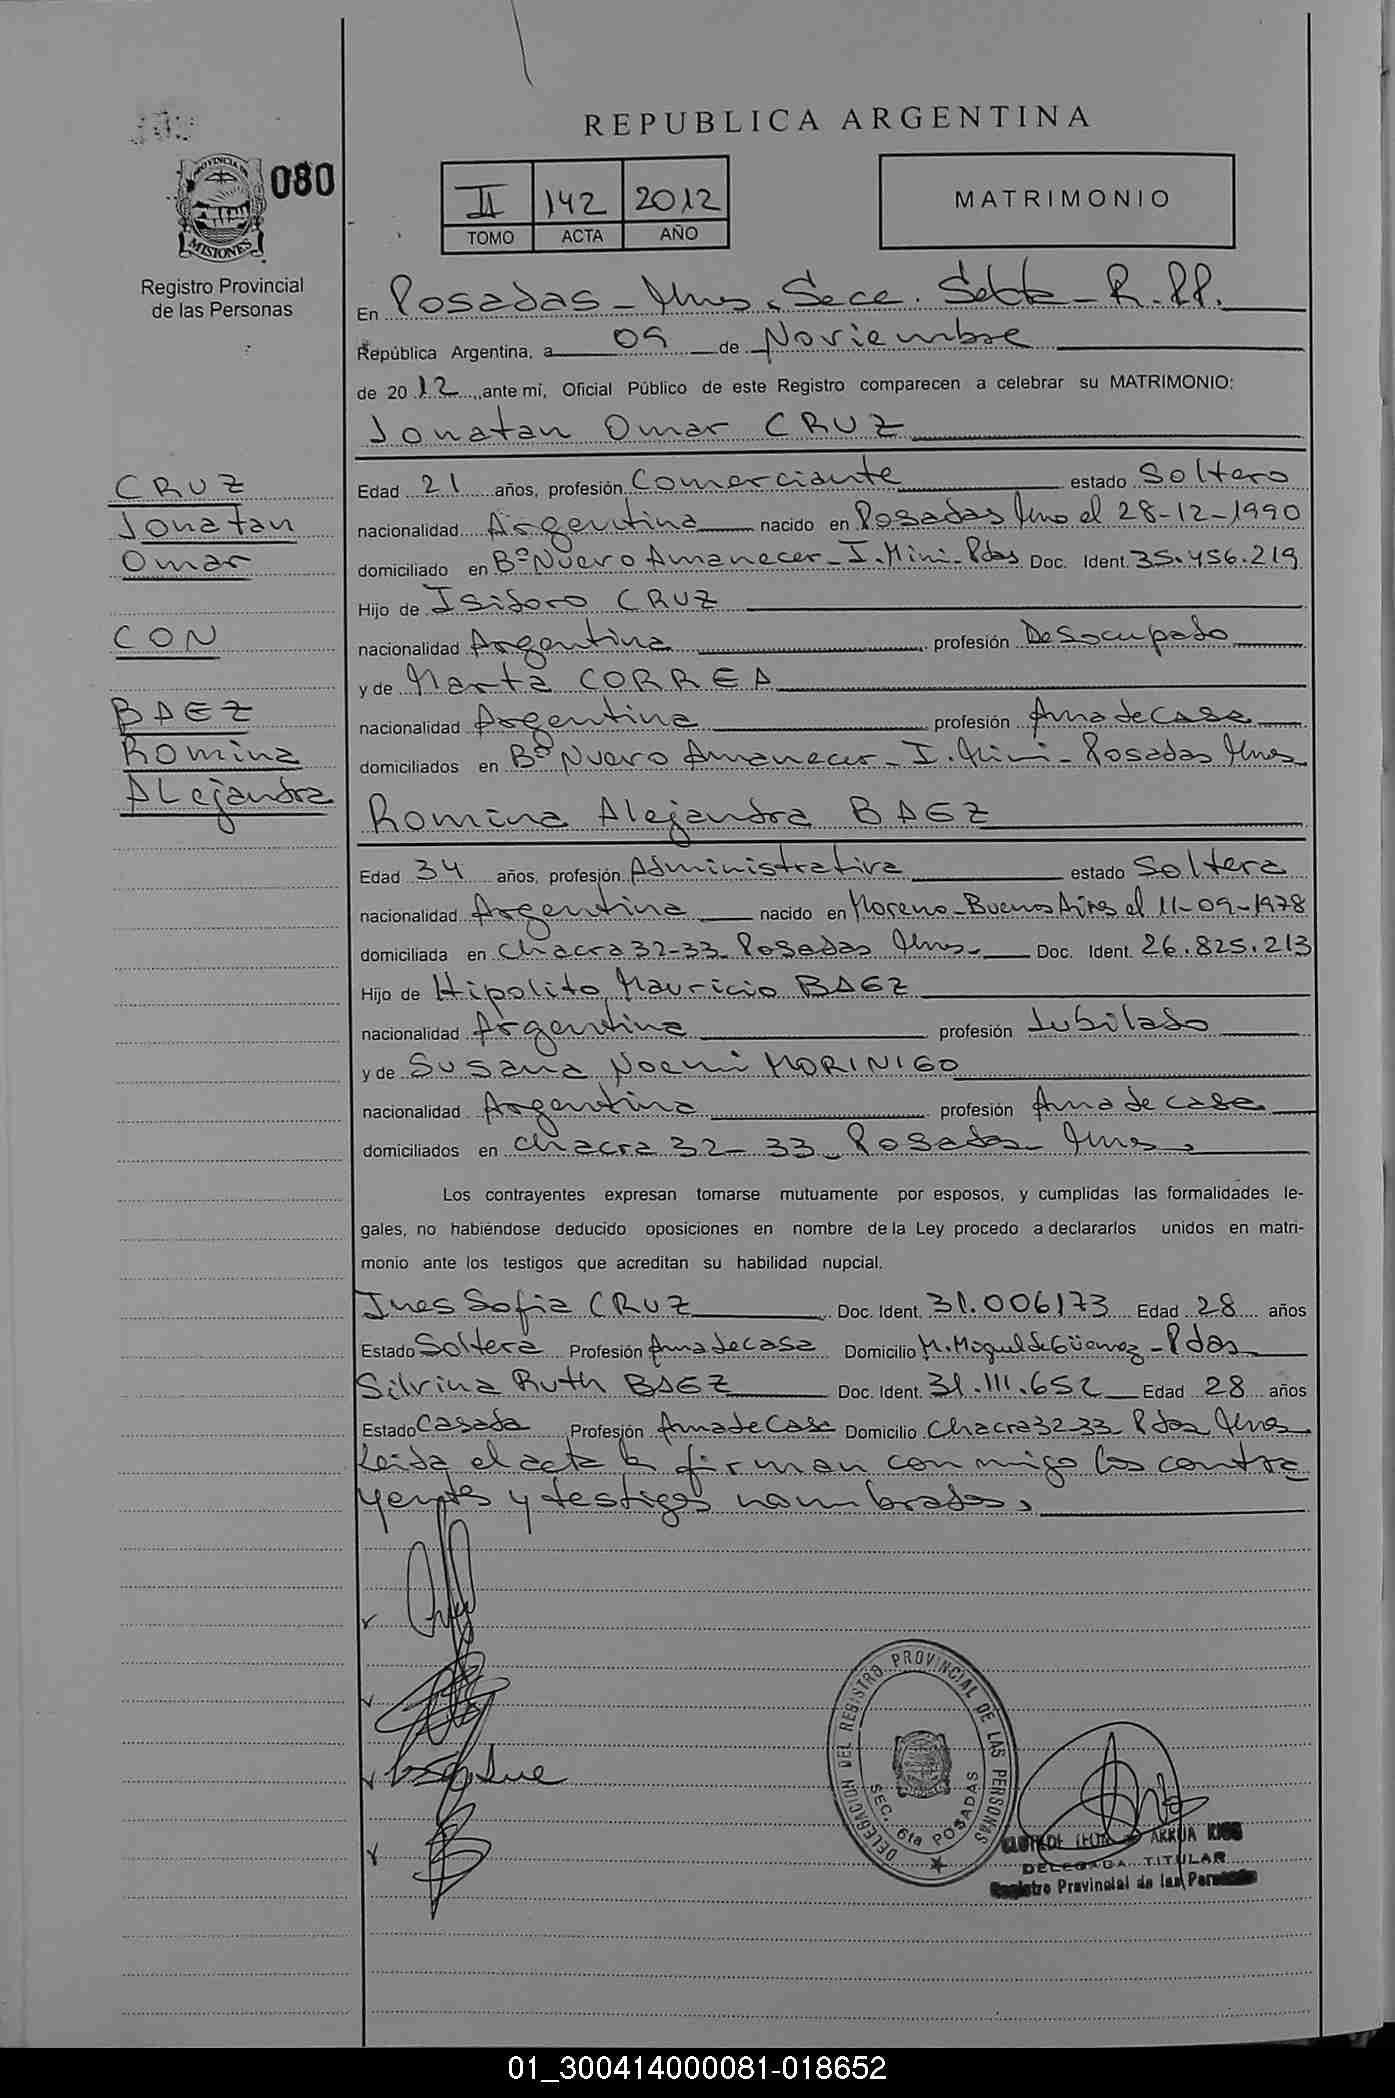 REPUBLICA ARGENTINA
PROVINCIA DE
MISIONES
080
Registro Provincial
de las Personas
II 142 2012
TOMO ACTA AÑO
MATRIMONIO
En Posadas - Mnes. Secc. Sexta - R.PP.
República Argentina, a 09 de Noviembre
de 2012, ante mi, Oficial Público de este Registro comparecen a celebrar su MATRIMONIO:
Jonatan Omar CRUZ
CRUZ
Jonatan
Omar
CON
BAEZ
Romina
ALejandra
Edad 21 años, profesión Comerciante estado Soltero
nacionalidad Argentina nacido en Posadas Mnes el 28-12-1990
domiciliado en Bº Nuevo Amanecer - I. Mini - Pdas Doc. Ident. 35.456.219
Hijo de Isidoro CRUZ
nacionalidad Argentina profesión Desocupado
y de Marta CORREA
nacionalidad Argentina profesión Ama de casa
domiciliados en Bº Nuevo Amanecer - I. Mini - Posadas Mnes
Romina Alejandra BAEZ
Edad 34 años, profesión Administrativa estado Soltera
nacionalidad Argentina nacido en Moreno - Buenos Aires el 11-09-1978
domiciliada en Chacra 32-33 Posadas Mnes. Doc. Ident. 26.825.213
Hijo de Hipolito Mauricio BAEZ
nacionalidad Argentina profesión Jubilado
y de Susana Noemi MORINIGO
nacionalidad Argentina profesión Ama de casa
domiciliados en chacra 32-33 - Posadas - Mnes.
Los contrayentes expresan tomarse mutuamente por esposos, y cumplidas las formalidades le-
gales, no habiéndose deducido oposiciones en nombre de la Ley procedo a declararlos unidos en matri-
monio ante los testigos que acreditan su habilidad nupcial.
Ines Sofia CRUZ Doc. Ident. 31.006173 Edad 28 años
Estado Soltera Profesión Ama de casa Domicilio M. Miguel de Güemez - Pdas
Silvina Ruth BAEZ Doc. Ident. 31.111.652 Edad 28 años
Estado Casada Profesión Ama de Casa Domicilio Chacra 32-33 Pdas Mnes
Leida el acta la firman conmigo los contra
yentes y testigos nombrados.
DELEGACION DEL REGISTRO PROVINCIAL DE LAS PERSONAS
SEC. 6ta POSADAS
ARRUA
DELEGADA TITULAR
Registro Provincial de las Personas
01_300414000081-018652